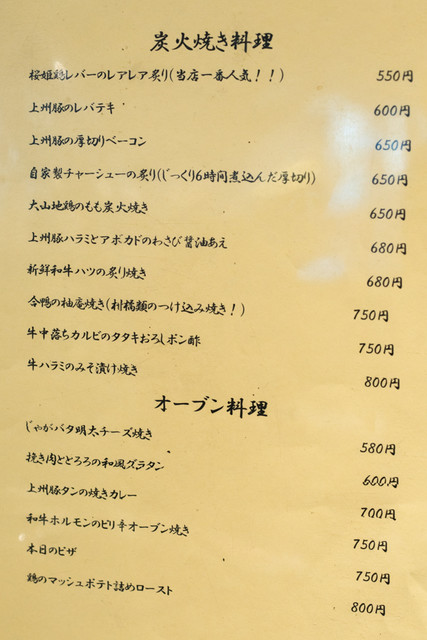 炭火焼き料理
桜姫鶏レバーのレアレア炙り(当店一番人気！！) 550円
上州豚のレバテキ 600円
上州豚の厚切りベーコン 650円
自家製チャーシューの炙り(じっくり6時間煮込んだ厚切り) 650円
大山地鶏のもも炭火焼き 650円
上州豚ハラミとアボカドのわさび醤油あえ 680円
新鮮和牛ハツの炙り焼き 680円
合鴨の柚庵焼き(柑橘類のつけ込み焼き！) 750円
牛中落ちカルビのタタキおろしポン酢 750円
牛ハラミのみそ漬け焼き 800円
オーブン料理
じゃがバタ明太チーズ焼き 580円
挽き肉ととろろの和風グラタン 600円
上州豚タンの焼きカレー 700円
和牛ホルモンのピリ辛オーブン焼き 750円
本日のピザ 750円
鶏のマッシュポテト詰めロースト 800円